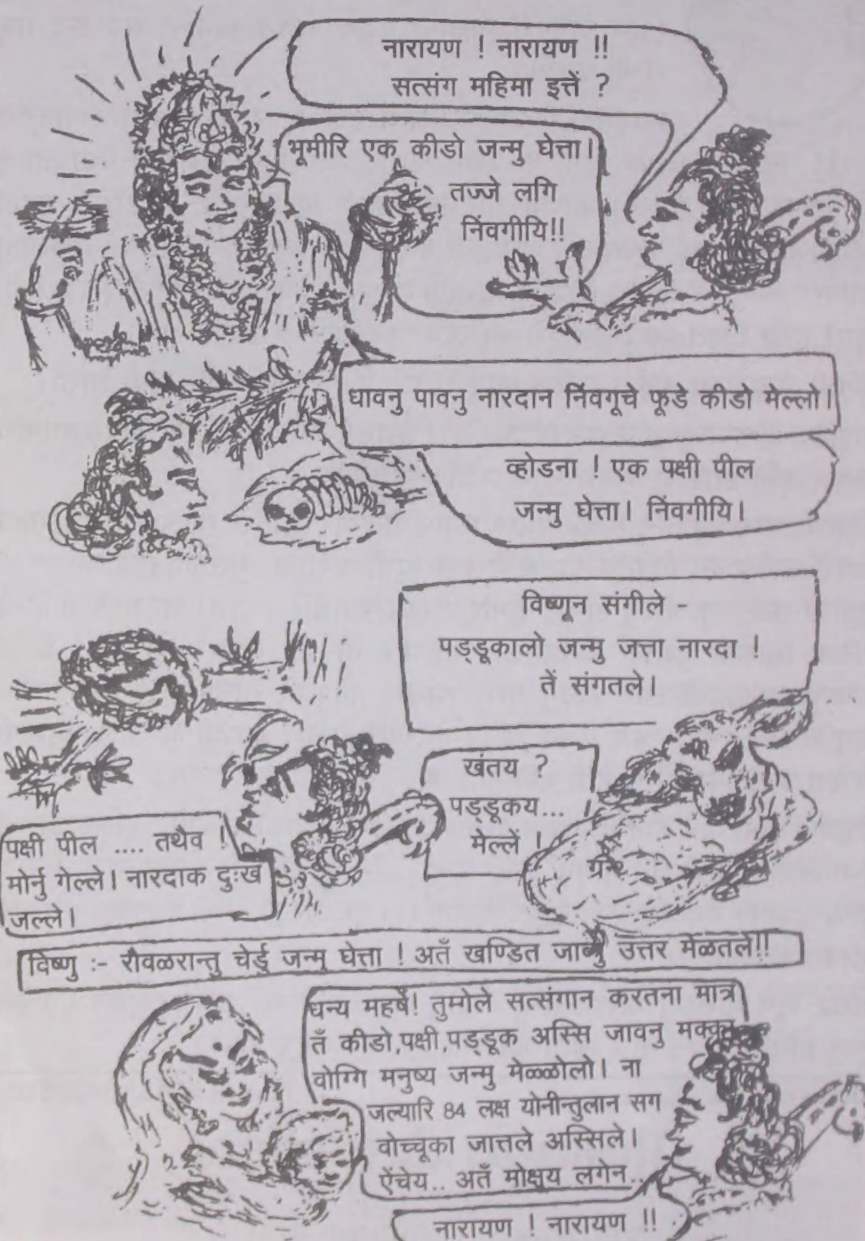 नारायण ! नारायण !!
सत्संग महिमा इत्तें ?
भूमीरि एक कीडो जन्मु घेत्ता।
तज्जे लगि
निंवगीयि!!
धावनु पावनु नारदान निंवगूचे फूडे कीडो मेल्लो।
व्होडना ! एक पक्षी पील
जन्मु घेत्ता। निंवगीयि।
विष्णून संगीले -
पड्डूकालो जन्मु जत्ता नारदा !
तें संगतले।
खंतय ?
पड्डूकय... !
मेल्लें !
पक्षी पील .... तथैव !
मोर्नु गेल्ले। नारदाक दुःख
जल्ले।
विष्णु :- रौवळरान्तु चेर्डु जन्मु घेत्ता ! अतँ खण्डित जाब्नु उत्तर मेळतले!!
धन्य महर्षे! तुम्गेले सत्संगान करतना मात्र
तँ कीडो,पक्षी,पड्डूक अस्सि जावनु मक्का
वोग्गि मनुष्य जन्मु मेळ्ळोलो। ना
जल्यारि 84 लक्ष योनीन्तुलान सग
वोच्चूका जात्तले अस्सिले।
ऐंचेय... अतँ मोक्षूय लगेन..
नारायण ! नारायण !!